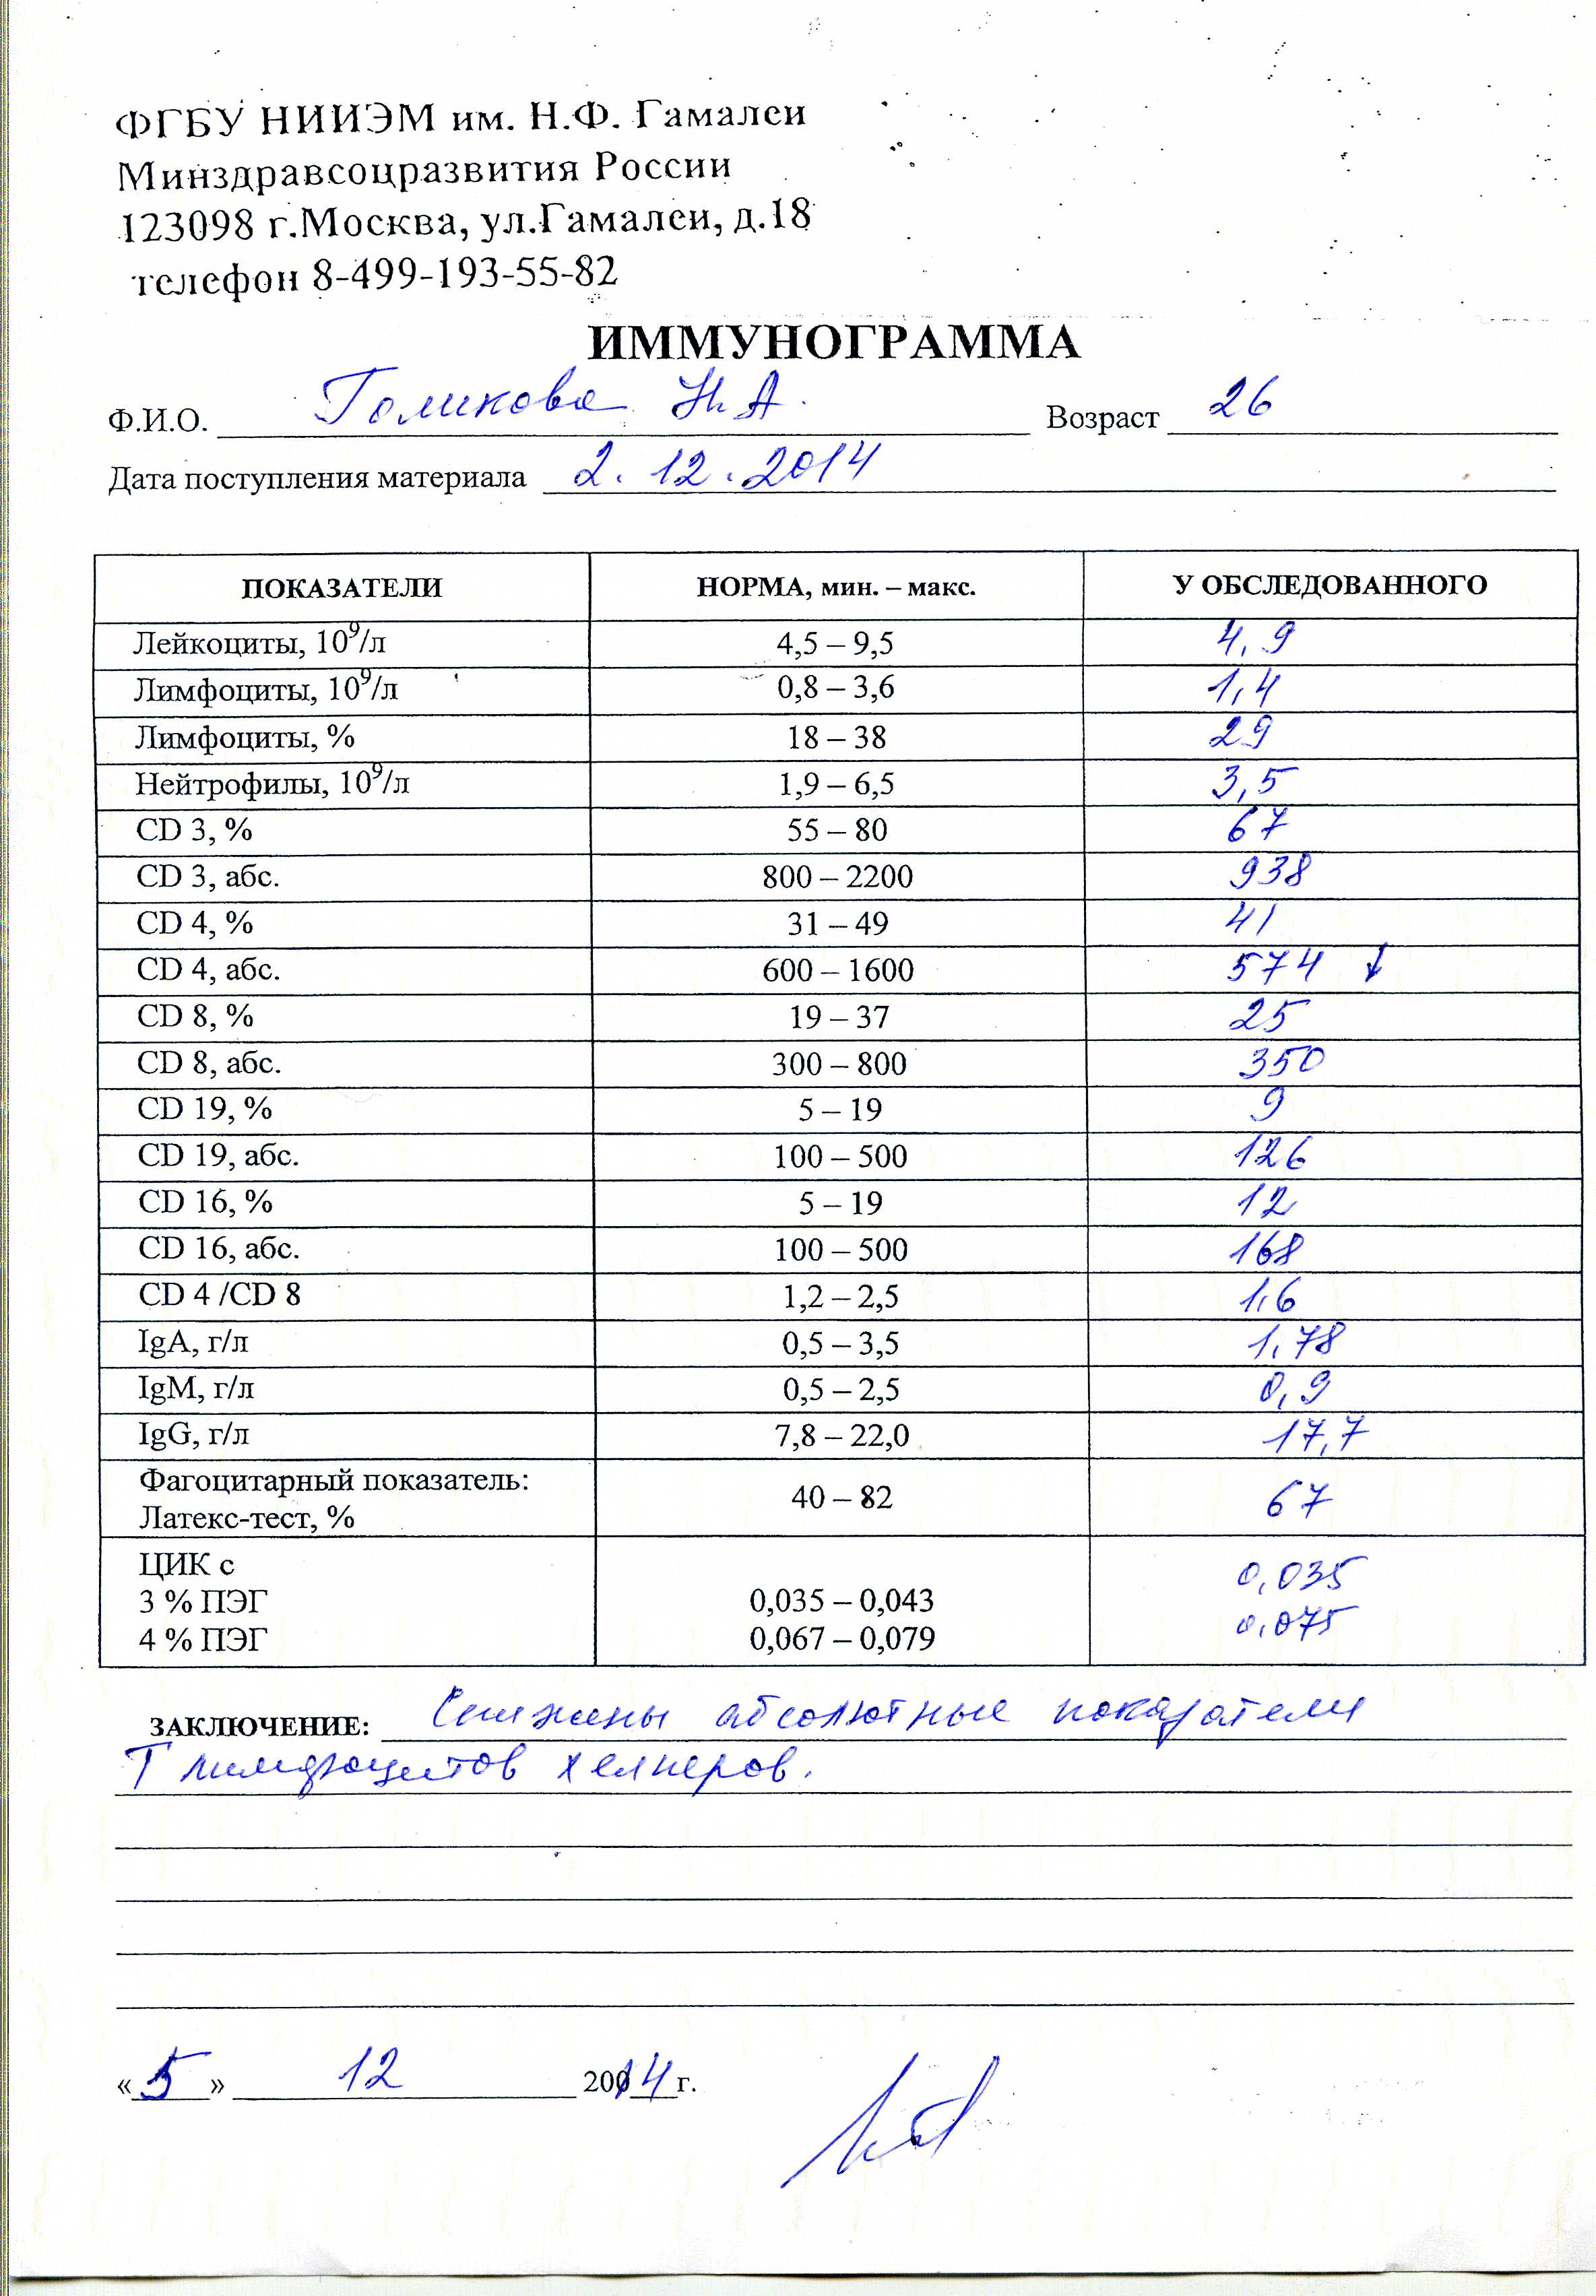 ФГБУ НИИЭМ им. Н.Ф. Гамалеи
Минздравсоцразвития России
123098 г.Москва, ул.Гамалеи, д.18
телефон 8-499-193-55-82
ИММУНОГРАММА
Ф.И.О. Голикова Н.А. Возраст 26
Дата поступления материала 2.12.2014
ПОКАЗАТЕЛИ НОРМА, мин. – макс. У ОБСЛЕДОВАННОГО
Лейкоциты, 10⁹/л 4,5 – 9,5 4,9
Лимфоциты, 10⁹/л 0,8 – 3,6 1,4
Лимфоциты, % 18 – 38 29
Нейтрофилы, 10⁹/л 1,9 – 6,5 3,5
CD 3, % 55 – 80 67
CD 3, абс. 800 – 2200 938
CD 4, % 31 – 49 41
CD 4, абс. 600 – 1600 574 ↓
CD 8, % 19 – 37 25
CD 8, абс. 300 – 800 350
CD 19, % 5 – 19 9
CD 19, абс. 100 – 500 126
CD 16, % 5 – 19 12
CD 16, абс. 100 – 500 168
CD 4 /CD 8 1,2 – 2,5 1,6
IgA, г/л 0,5 – 3,5 1,78
IgM, г/л 0,5 – 2,5 0,9
IgG, г/л 7,8 – 22,0 17,7
Фагоцитарный показатель:
Латекс-тест, % 40 – 82 67
ЦИК с
3 % ПЭГ 0,035 – 0,043 0,035
4 % ПЭГ 0,067 – 0,079 0,075
ЗАКЛЮЧЕНИЕ: Снижены абсолютные показатели
Т лимфоцитов хелперов.
«5» 12 2014 г.